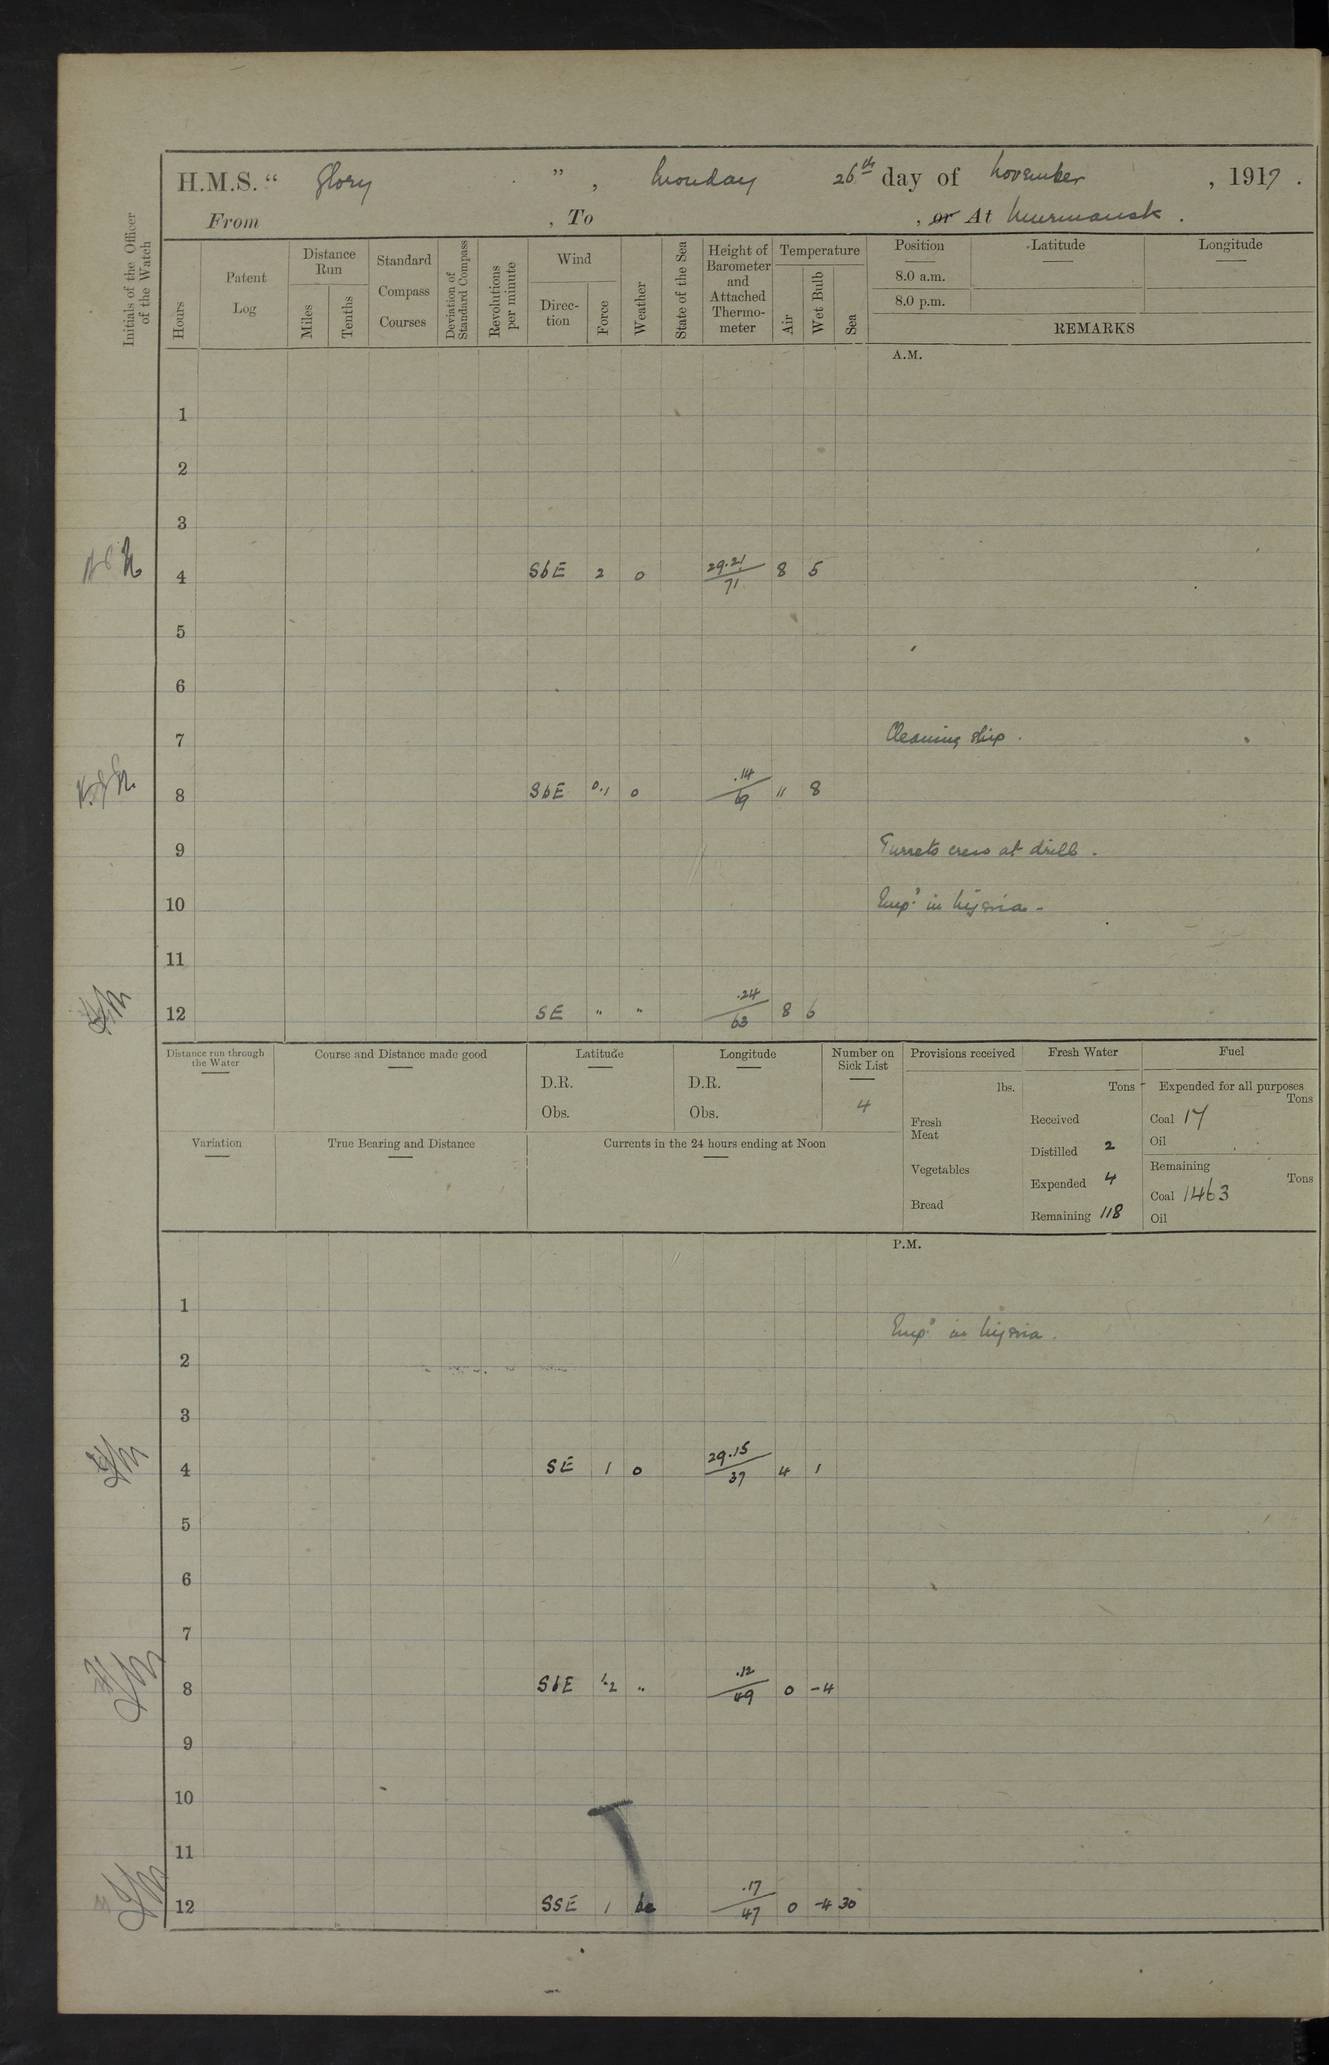 H.M.S. “ Glory ” , Monday 26th day of November , 1917 .
From , To , or At Murmansk .
Initials of the Officer of the Watch
Hours
Patent Log
Distance Run
Miles
Tenths
Standard Compass Courses
Deviation of Standard Compass
Revolutions per minute
Wind
Direc-tion
Force
Weather
State of the Sea
Height of Barometer and Attached Thermo-meter
Temperature
Air
Wet Bulb
Sea
Position Latitude Longitude
8.0 a.m.
8.0 p.m.
REMARKS
A.M.
1
2
3
4 SbE 2 o 29.21/71 8 5
5
6
7 Cleaning ship .
8 SbE 0.1 o .14/69 " 8
9 Turrets crews at drill .
10 Emp.d in
11
12 SE " " .24/63 8 6
Distance run through the Water
Course and Distance made good
Latitude
D.R.
Obs.
Longitude
D.R.
Obs.
Number on Sick List
4
Variation
True Bearing and Distance
Currents in the 24 hours ending at Noon
Provisions received
lbs.
Fresh Meat
Vegetables
Bread
Fresh Water
Tons
Received
Distilled 2
Expended 4
Remaining 118
Fuel
Expended for all purposes
Tons
Coal 17
Oil
Remaining
Tons
Coal 1463
Oil
P.M.
1
Emp.d in
2
3
4 SE 1 o 29.15/37 4 1
5
6
7
8 SbE 1.2 " .12/49 0 -4
9
10
11
12 SSE 1 bc .17/47 0 -4 30